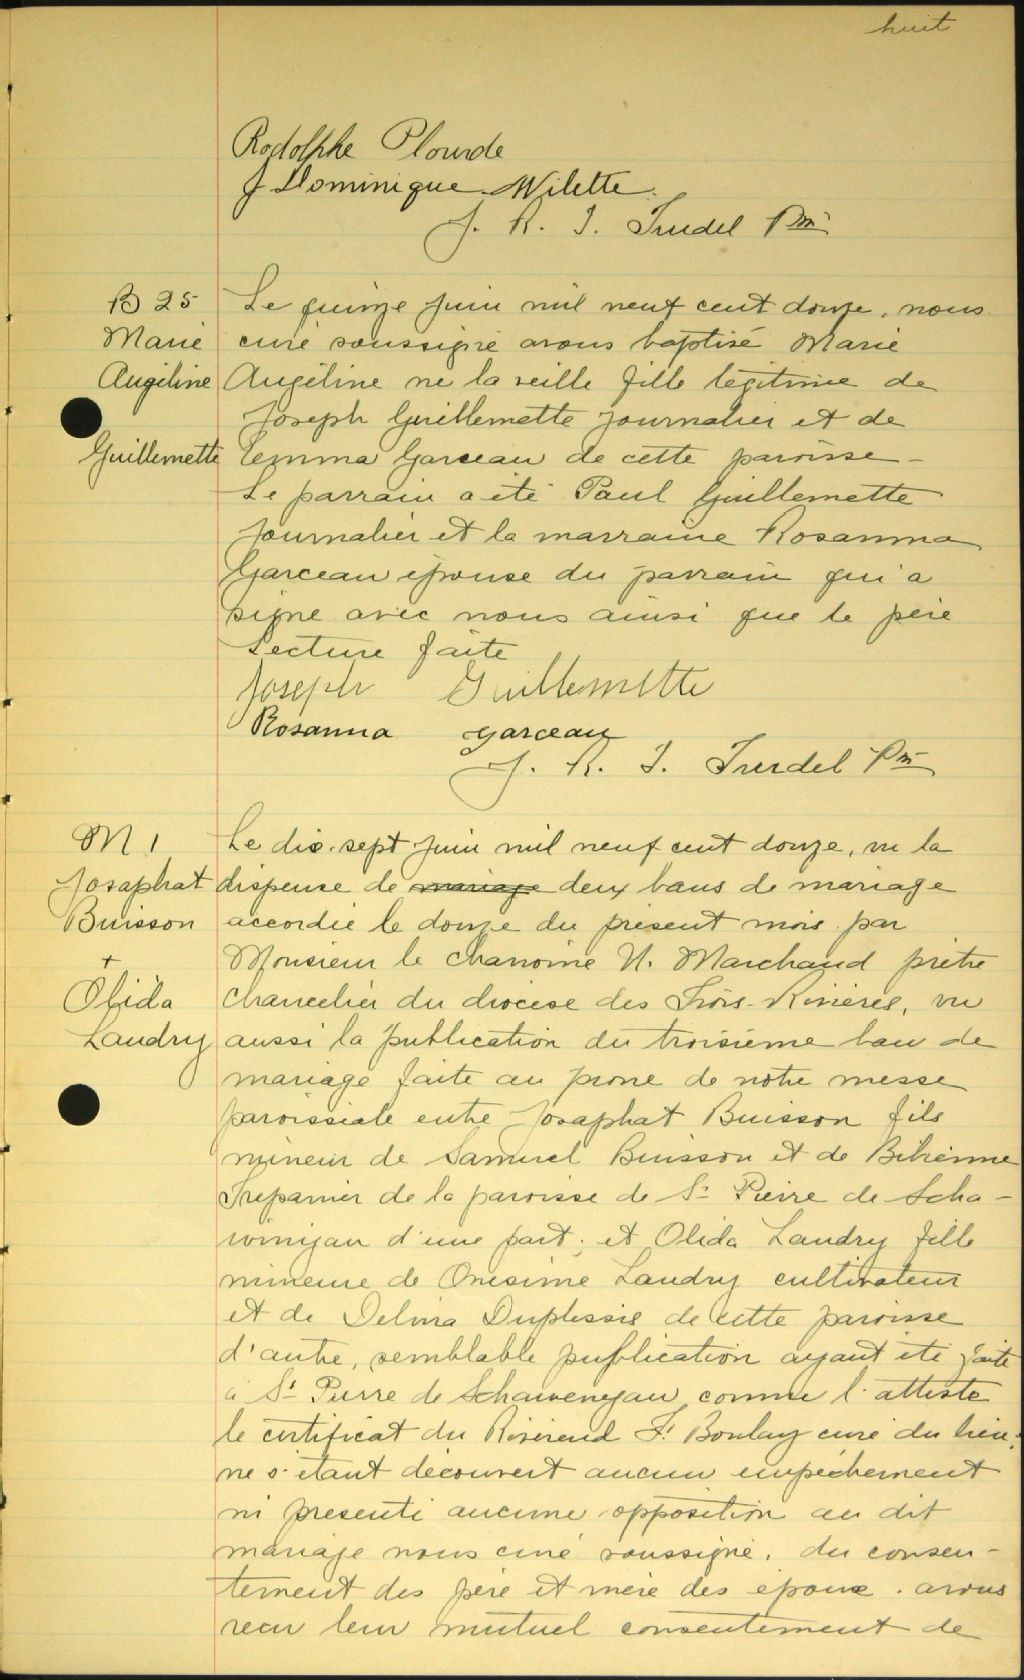 huit
Rodolphe Plourde
J Dominique Milette.
J. R. I. Trudel Ptre
B 25
Marie
Angéline
Guillemette
Le quinze juin mil neuf cent douze, nous
curé soussigné avons baptisé Marie
Angéline né la veille fille légitime de
Joseph Guillemette journalier et de
Emma Garceau de cette paroisse -
Le parrain a été Paul Guillemette
journalier et la marraine Rosanna
Garceau épouse du parrain qui a
signé avec nous ainsi que le père
Lecture faite
Joseph Guillemette
Rosanna garceau
J. R. I. Trudel Ptre
M 1
Josaphat
Buisson
+
Olida
Landry
Le dix-sept juin mil neuf cent douze, vu la
dispense de mariage deux bans de mariage
accordée le douze du présent mois par
Monsieur le chanoine U. Marchand prêtre
chancelier du diocèse des Trois-Rivières, vu
aussi la publication du troisième ban de
mariage faite au prone de notre messe
paroissiale entre Josaphat Buisson fils
mineur de Samuel Buisson et de Bibienne
Trepanier de la paroisse de St Pierre de Scha-
winigan d'une part; et Olida Landry fille
mineure de Onesime Landry cultivateur
et de Delina Duplessis de cette paroisse
d'autre, semblable publication ayant été faite
à St Pierre de Schawenegan comme l'atteste
le certificat du Révérend F. Boulay curé du lieu;
ne s'étant découvert aucun empêchement
ni présenté aucune opposition au dit
mariage nous curé soussigné, du consen-
tement des père et mère des époux, avons
recu leur mutuel consentement de